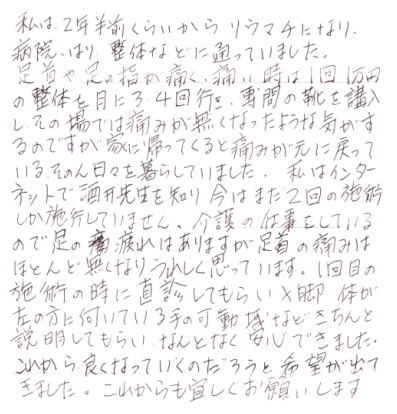 私は、2年半前くらいから リウマチになり、
病院、はり、整体などに通っていました。
足首や足の指が痛く、痛い時は1回1万円
の整体を月に3.4回行き、専門の靴を購入
し、その場では痛みが無くなったような気がす
るのですが家に帰ってくると痛みが元に戻って
いる、そのん日々を暮らしていました。 私はインター
ネットで酒井先生を知り 今はまだ2回の施術
しか施行していません。介護の仕事をしている
ので足の 疲れはありますが足首の痛みは
ほとんど無くなりうれしく思っています。1回目の
施術の時に直診してもらいX脚 体が
左の方に付いている手の可動域などきちんと
説明してもらい なんとなく安心できました。
これから良くなっていくのだろうと希望が出て
きました。これからも宜しくお願いします